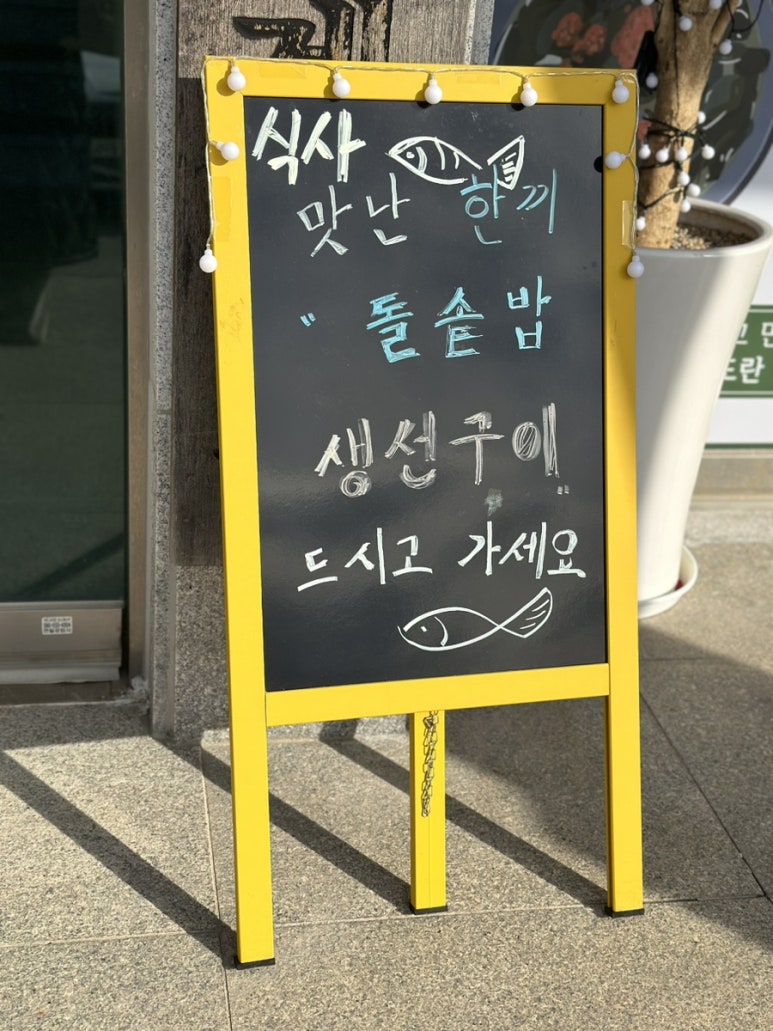 식사
맛난 한끼
" 돌솥밥
생선구이 "
드시고 가세요